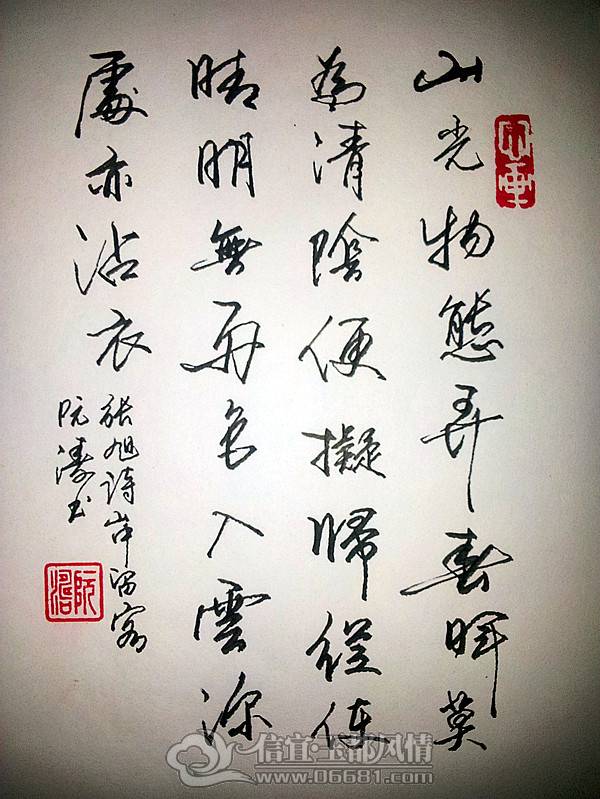 山光物態弄春暉莫
為清陰便擬歸縱使
晴明無雨色入雲深
處亦沾衣
張旭詩山中留客
阮濤書
信宜·玉都风情
www.06681.com